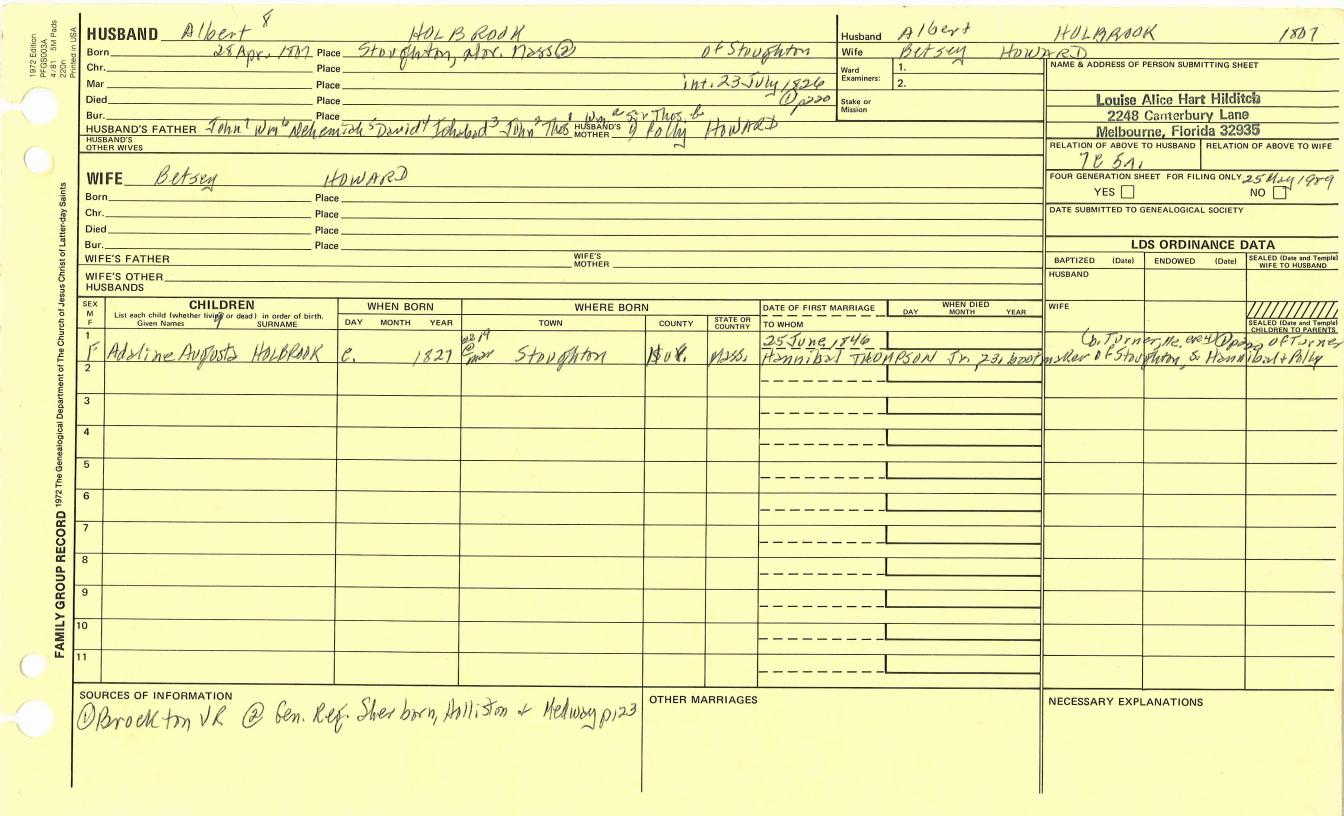 1972 Edition
PFGS003A
4/81 5M Pads
220n
Printed in USA
FAMILY GROUP RECORD 1972 The Genealogical Department of The Church of Jesus Christ of Latter-day Saints
HUSBAND Albert 8 HOLBROOK
Born 28 Apr. 1807 Place Stoughton, Nor. Mass ② of Stoughton
Chr. Place
Mar Place int. 23 July 1826
Died Place ① p220
Bur. Place
HUSBAND'S FATHER John7 Wm6 Nehemiah5 David4 Ichabod3 John2 Thos1 HUSBAND'S MOTHER Polly HOWARD
HUSBAND'S OTHER WIVES
Husband Albert HOLBROOK 1807
Wife Betsey HOWARD
Ward Examiners: 1.
2.
Stake or Mission
NAME & ADDRESS OF PERSON SUBMITTING SHEET
Louise Alice Hart Hilditch
2248 Canterbury Lane
Melbourne, Florida 32935
RELATION OF ABOVE TO HUSBAND RELATION OF ABOVE TO WIFE
FOUR GENERATION SHEET FOR FILING ONLY 25 May 1989
YES NO
DATE SUBMITTED TO GENEALOGICAL SOCIETY
WIFE Betsey HOWARD
Born Place
Chr. Place
Died Place
Bur. Place
WIFE'S FATHER WIFE'S MOTHER
WIFE'S OTHER HUSBANDS
LDS ORDINANCE DATA
BAPTIZED (Date) ENDOWED (Date) SEALED (Date and Temple) WIFE TO HUSBAND
HUSBAND
WIFE
SEALED (Date and Temple) CHILDREN TO PARENTS
SEX M F CHILDREN WHEN BORN WHERE BORN DATE OF FIRST MARRIAGE WHEN DIED
List each child (whether living or dead) in order of birth. DAY MONTH YEAR
Given Names SURNAME DAY MONTH YEAR TOWN COUNTY STATE OR COUNTRY TO WHOM
1 25 June 1846 (b. Turner, Me. of Turner
F Adaline Augusta HOLBROOK c. 1827 @ mar Stoughton Nor. Mass. Hannibal THOMPSON Jr, 23, bootmaker of Stoughton, s Hannibal + Polly
2
3
4
5
6
7
8
9
10
11
SOURCES OF INFORMATION
① Brockton VR ② Gen. Reg. Sherborn, Holliston + Medway p123
OTHER MARRIAGES
NECESSARY EXPLANATIONS